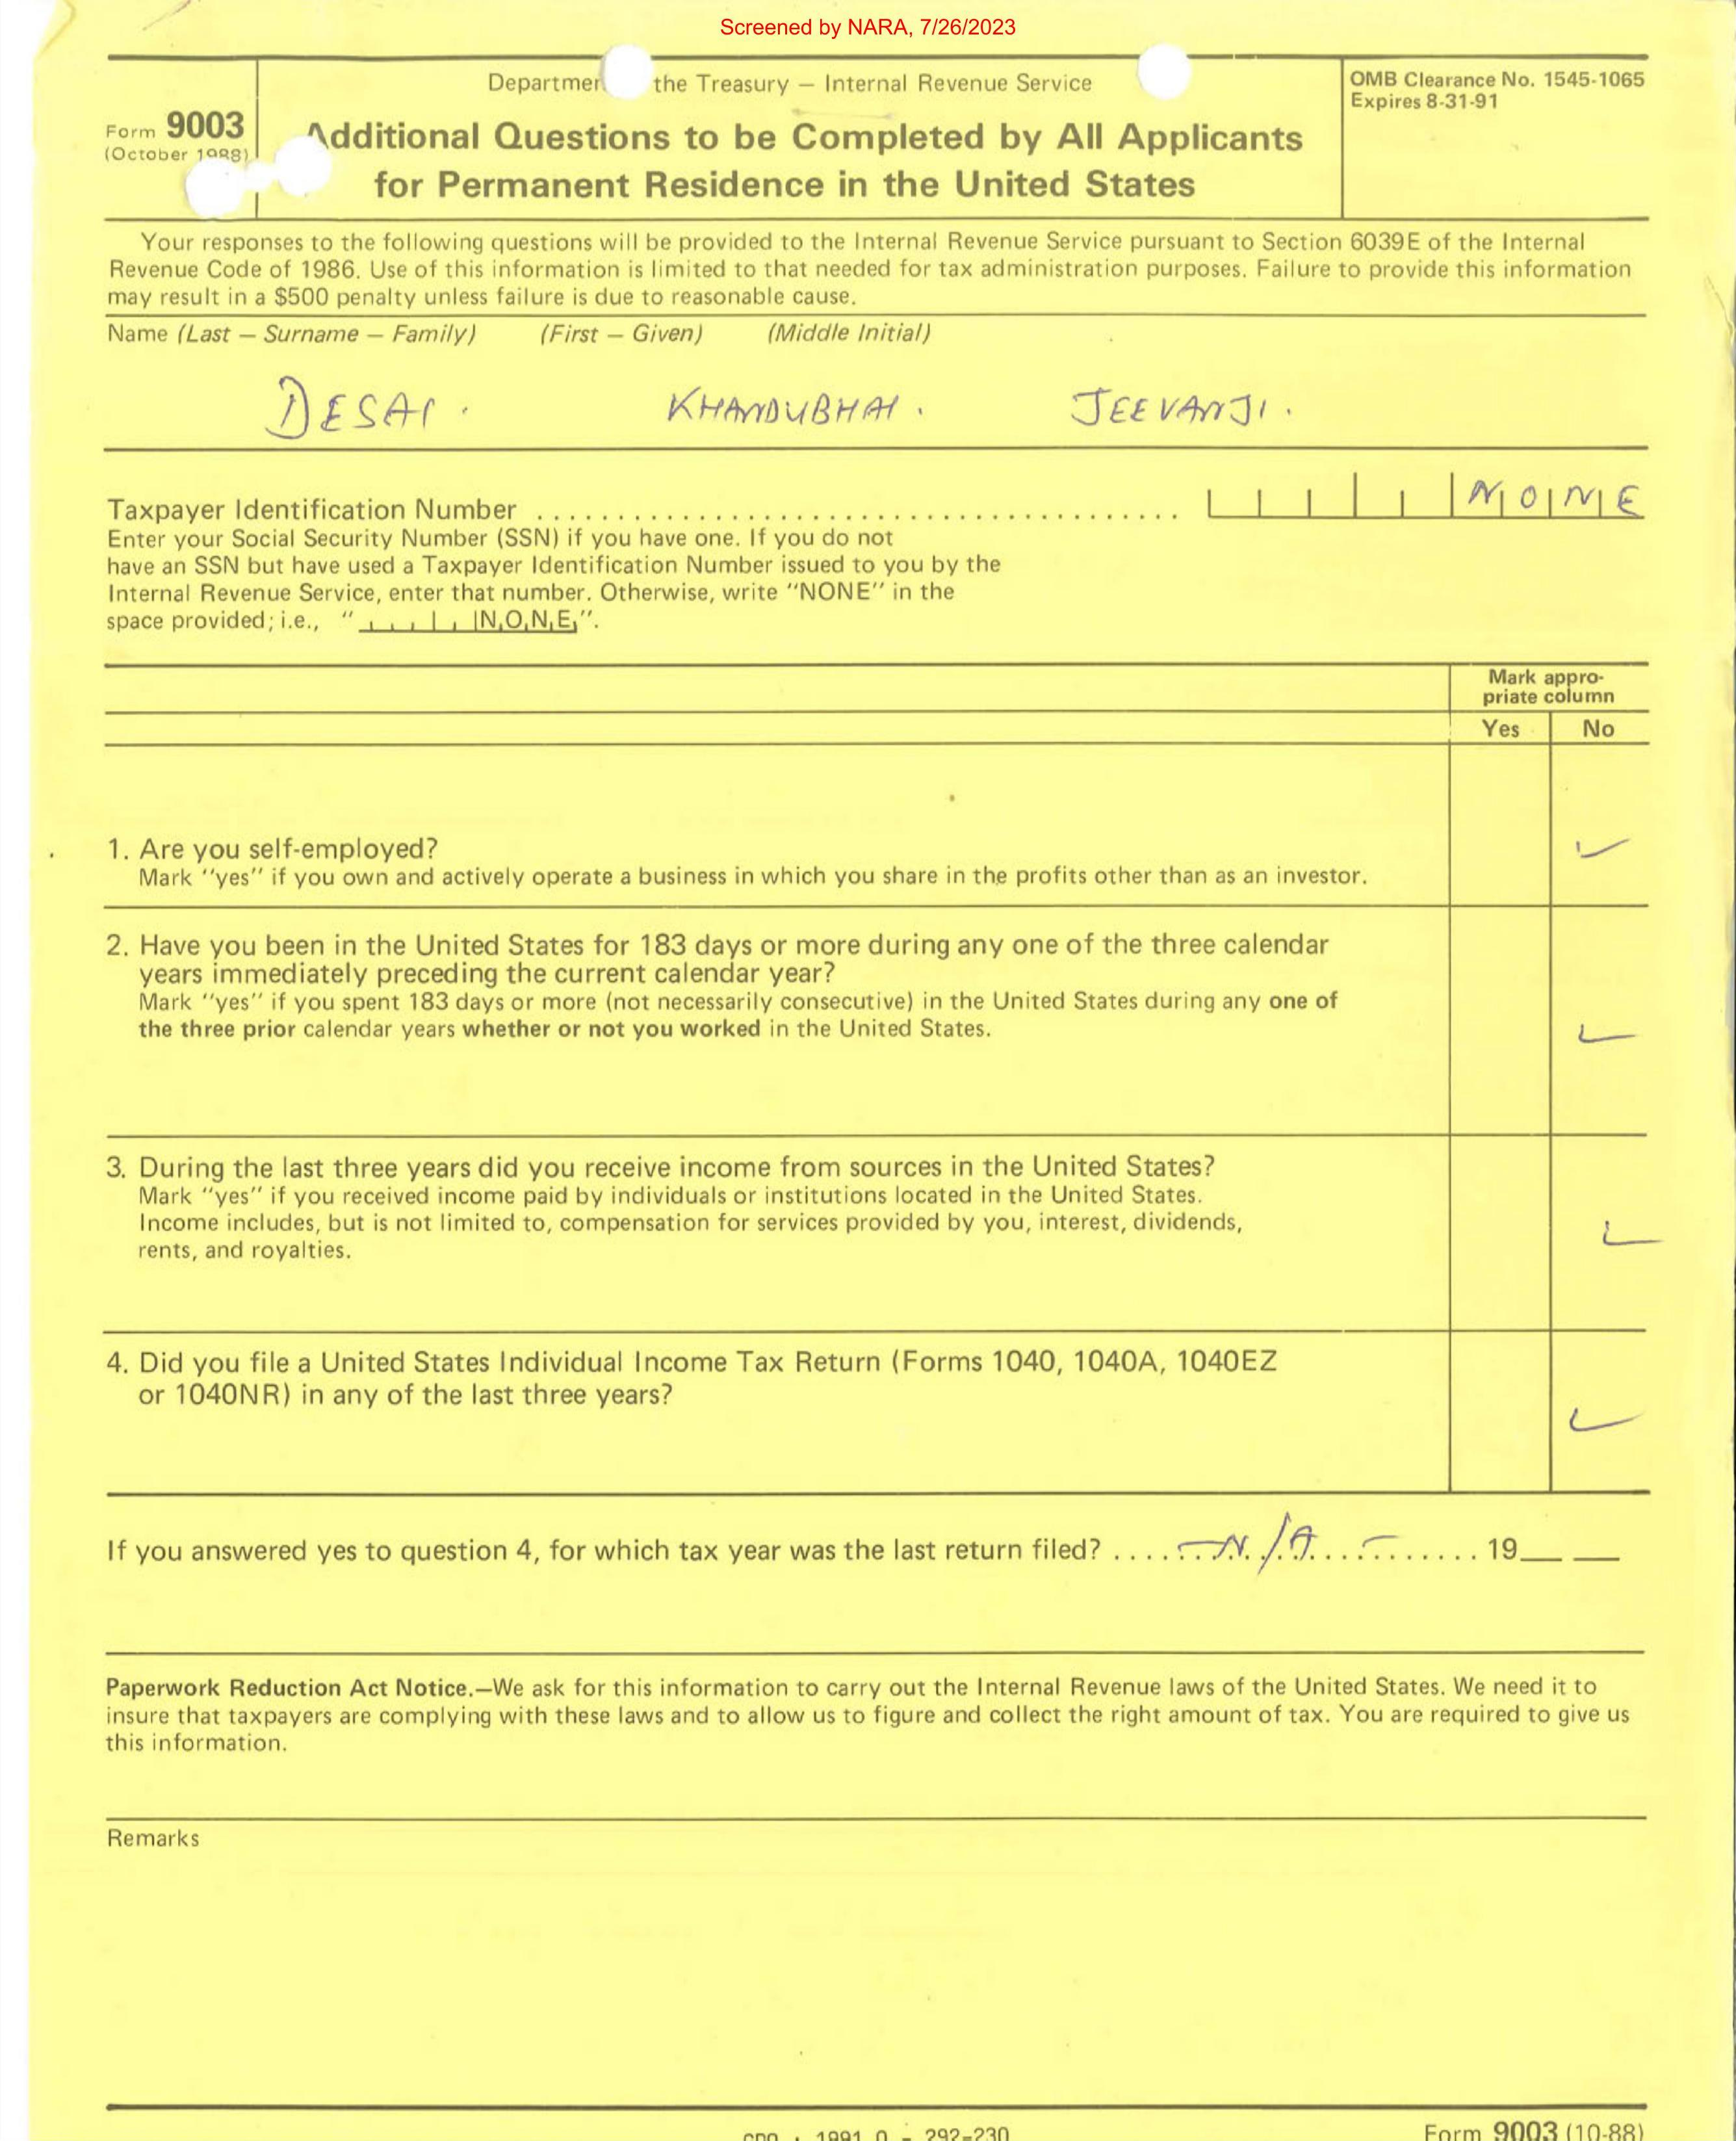 Screened by NARA, 7/26/2023
the Treasury — Internal Revenue Service
OMB Clearance No. 1545-1065
Expires 8-31-91
Form 9003
(October 1988)
Additional Questions to be Completed by All Applicants
for Permanent Residence in the United States
Your responses to the following questions will be provided to the Internal Revenue Service pursuant to Section 6039E of the Internal
Revenue Code of 1986. Use of this information is limited to that needed for tax administration purposes. Failure to provide this information
may result in a $500 penalty unless failure is due to reasonable cause.
Name (Last — Surname — Family) (First — Given) (Middle Initial)
DESAI. KHANDUBHAI. JEEVANJI.
Taxpayer Identification Number NONE
Enter your Social Security Number (SSN) if you have one. If you do not
have an SSN but have used a Taxpayer Identification Number issued to you by the
Internal Revenue Service, enter that number. Otherwise, write "NONE" in the
space provided; i.e., "NONE".
Mark appro-
priate column
Yes No
1. Are you self-employed?
Mark "yes" if you own and actively operate a business in which you share in the profits other than as an investor.
2. Have you been in the United States for 183 days or more during any one of the three calendar
years immediately preceding the current calendar year?
Mark "yes" if you spent 183 days or more (not necessarily consecutive) in the United States during any one of
the three prior calendar years whether or not you worked in the United States.
3. During the last three years did you receive income from sources in the United States?
Mark "yes" if you received income paid by individuals or institutions located in the United States.
Income includes, but is not limited to, compensation for services provided by you, interest, dividends,
rents, and royalties.
4. Did you file a United States Individual Income Tax Return (Forms 1040, 1040A, 1040EZ
or 1040NR) in any of the last three years?
If you answered yes to question 4, for which tax year was the last return filed? — N/A — 19__ __
Paperwork Reduction Act Notice.—We ask for this information to carry out the Internal Revenue laws of the United States. We need it to
insure that taxpayers are complying with these laws and to allow us to figure and collect the right amount of tax. You are required to give us
this information.
Remarks
1991 0 - 292-230
Form 9003 (10-88)